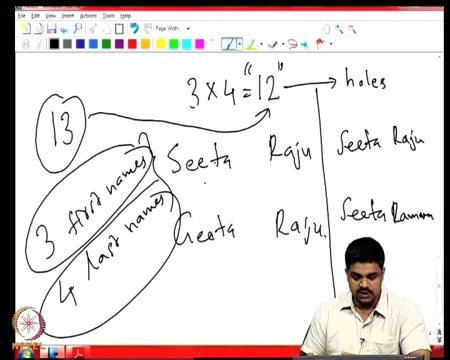 File Edit View Insert Actions Tools Help
Page Width
3 × 4 = "12" → holes
13
3 first names
4 last names
Seeta Raju
Geeta Raju
Seeta Raju
Seeta Ramana